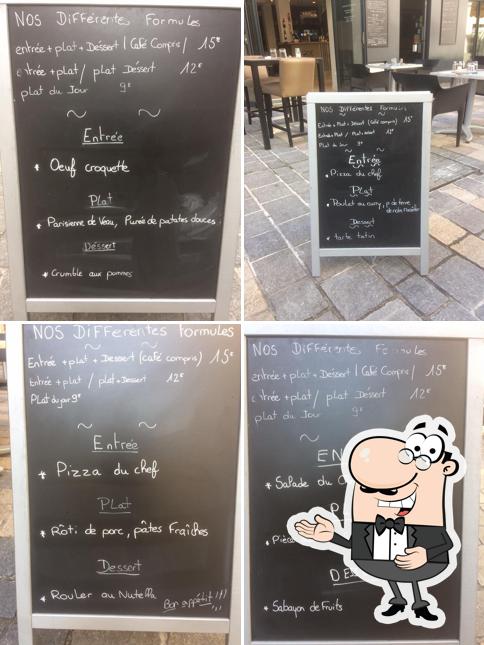 NOS Différentes Formules
entrée + plat + Dessert (Café Compris) 15€
entrée + plat / plat Dessert 12€
plat du Jour 9€
Entrée
* Oeuf croquette
Plat
* Parisienne de Veau, Purée de patates douces
Déssert
* Crumble aux pommes
NOS Différentes Formules
Entrée + Plat + Dessert (café compris) 15€
Entrée + Plat / Plat + dessert 12€
Plat du Jour 9€
Entrée
* Pizza du chef
Plat
* Poulet au curry, p de terre
Dessert
* tarte tatin
NOS Différentes formules
Entrée + plat + Dessert (café compris) 15€
Entrée + plat / plat + Dessert 12€
Plat du jour 9€
Entrée
* Pizza du chef
Plat
* Rôti de porc, pâtes Fraîches
Dessert
* Rouler au Nutella
Bon appétit !!!
NOS Différentes Formules
entrée + plat + Dessert (Café Compris) 15€
entrée + plat / plat Déssert 12€
plat du Jour 9€
EN
* Salade du
P
* Pièce
DE
* Sabayon de Fruits